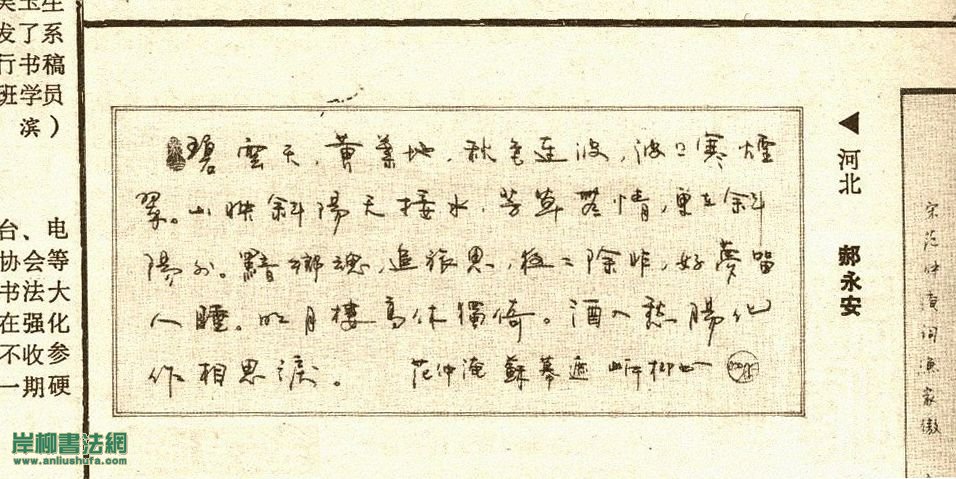 吴玉生
发了系
行书稿
班学员
滨）
台、电
协会等
书法大
在强化
不收参
一期硬
碧雲天，黄葉地，秋色連波，波二寒煙
翠。山映斜陽天接水，芳草無情，更在斜
陽外。黯鄉魂，追旅思，夜二除非，好夢留
人睡。明月樓高休獨倚。酒入愁腸化
作相思淚。 范仲淹 蘇幕遮 岸柳书
◀河北 郝永安
宋范仲淹词渔家傲
岸柳書法網
www.anliushufa.com